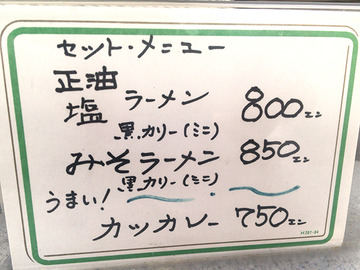 セット・メニュー
正油
塩 ラーメン 800エン
黒カリー(ミニ)
みそラーメン 850エン
黒カリー(ミニ)
うまい!
カツカレー 750エン